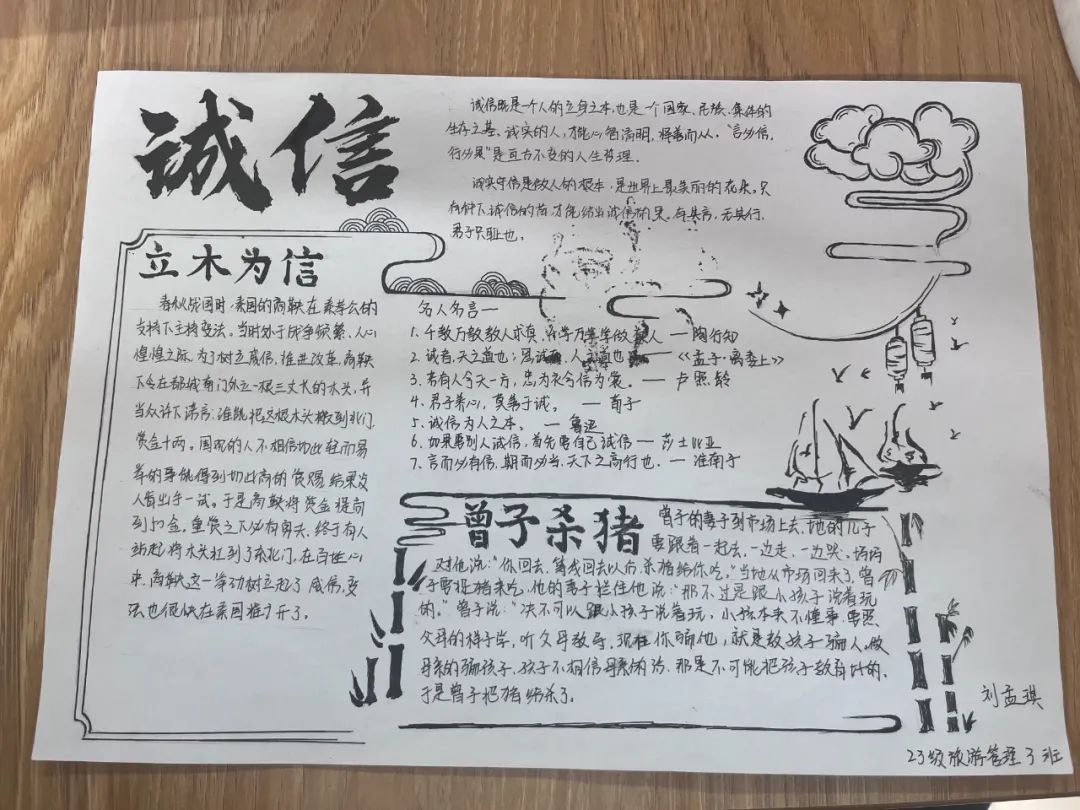 诚信
诚信既是一个人的立身之本,也是一个国家、民族、集体的
生存之基。诚实的人,才能心智清明,择善而从。“言必信,
行必果”是亘古不变的人生哲理。
诚实守信是做人的根本,是世界上最美丽的花朵。只
有种下诚信的苗,才能结出诚信的果。有其言,无其行,
君子只耻也。
立木为信
春秋战国时,秦国的商鞅在秦孝公的
支持下主持变法。当时处于战争频繁、人心
惶惶之际,为了树立威信,推进改革,商鞅
下令在都城南门外立一根三丈长的木头,并
当众许下诺言:谁能把这根木头搬到北门,
赏金十两。围观的人不相信如此轻而易
举的事能得到如此高的赏赐,结果没
人肯出手一试。于是商鞅将赏金提高
到50金。重赏之下必有勇夫,终于有人
站起将木头扛到了北门,在百姓心
中,商鞅这一举动树立起了威信,变
法也很快在秦国推广开了。
名人名言—
1. 千教万教教人求真,千学万学学做真人 — 陶行知
2. 诚者,天之道也;思诚者,人之道也 — 《孟子·离娄上》
3. 若有人兮天一方,忠为衣兮信为裳。— 卢照龄
4. 君子养心,莫善于诚。— 荀子
5. 诚信为人之本。— 鲁迅
6. 如果要别人诚信,首先要自己诚信 — 莎士比亚
7. 言而必有信,期而必当,天下之高行也. — 淮南子
曾子杀猪
曾子的妻子到市场上去,她的儿子
要跟着一起去,一边走,一边哭。妈妈
对他说:“你回去,等我回去以后,杀猪给你吃。”当她从市场回来了,曾
子要捉猪来吃,他的妻子拦住他说:“那不过是跟小孩子说着玩
的。”曾子说:“决不可以跟小孩子说着玩,小孩本来不懂事,要照
父母的样子学,听父母教导,现在你骗他,就是教孩子骗人。做
母亲的骗孩子,孩子不相信母亲的话,那是不可能把孩子教育好的。
于是曾子把猪给杀了。
刘孟琪
23级旅游管理3班